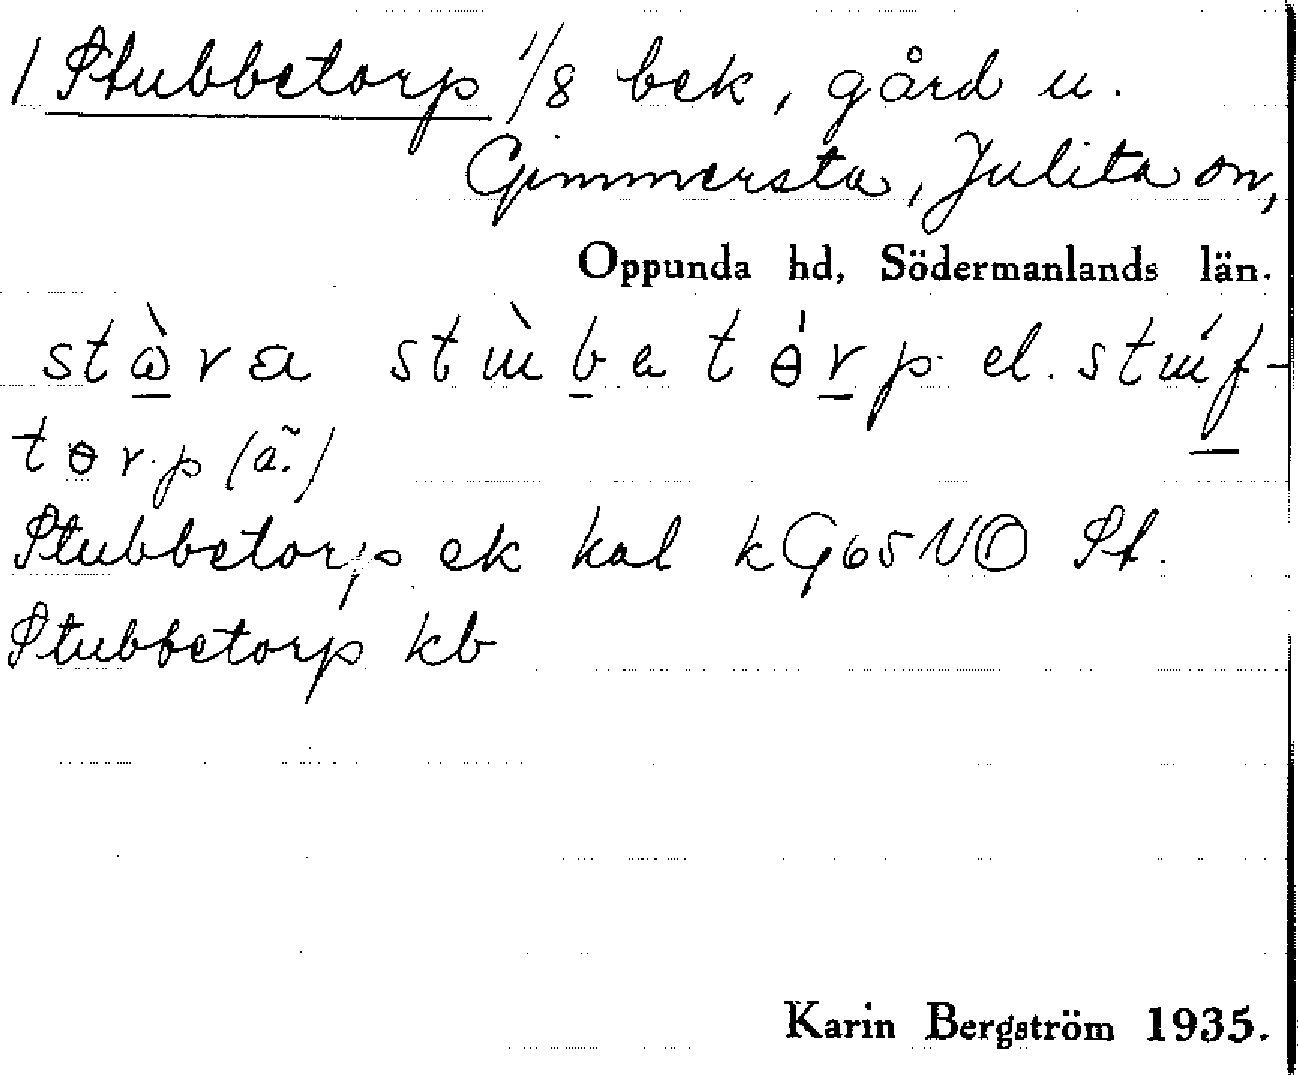 1 Stubbetorp 1/8 bek, gård u.
Gimmersta, Julita sn,
Oppunda hd, Södermanlands län.
stɷ̀ra stɯ̀batɵ́rp el. stɯ́f-
tɵrp (ä.)
Stubbetorp ek kal kG65NO St.
Stubbetorp kb
Karin Bergström 1935.